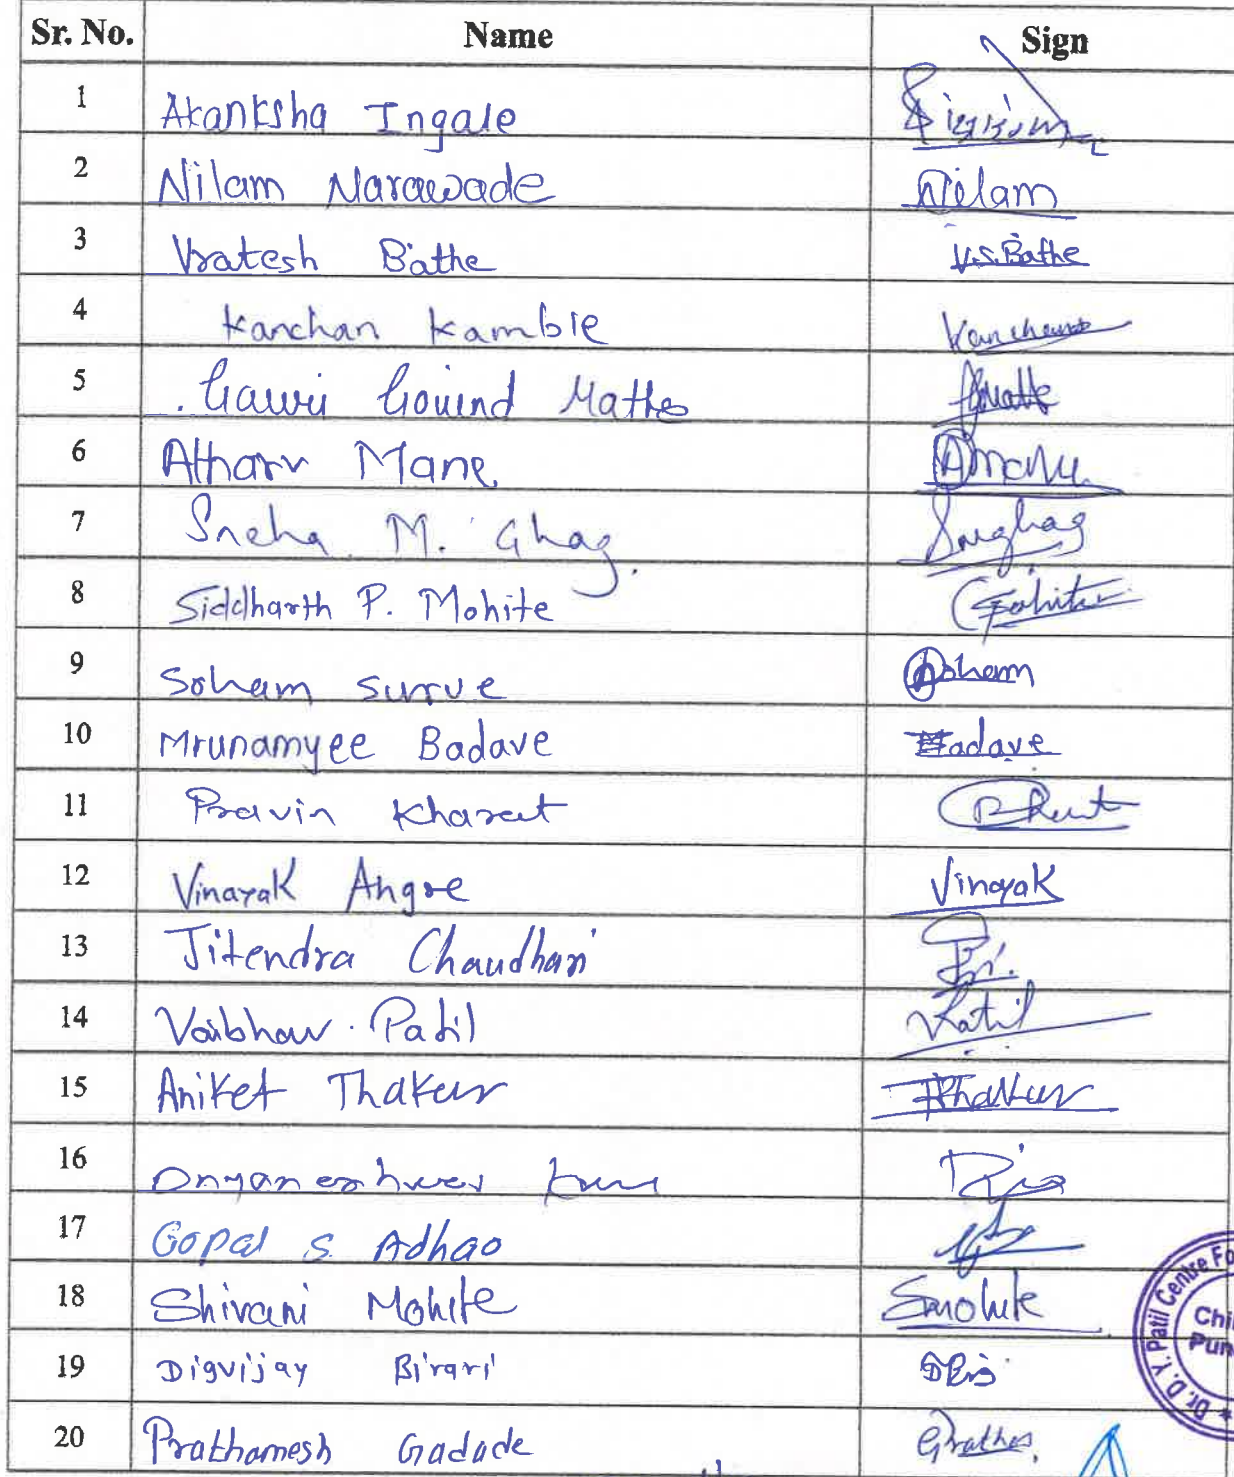 Sr. No. Name Sign
1 Akanksha Ingale
2 Nilam Narawade Nilam
3 Vratesh Bathe V.S.Bathe
4 Kanchan Kamble Kanchan
5 Gauri Govind Mathe
6 Atharv Mane Amane
7 Sneha M. Ghag. Smghag
8 Siddharth P. Mohite
9 Soham Surve Soham
10 Mrunamyee Badave Badave
11 Pravin Kharat
12 Vinayak Angre Vinayak
13 Jitendra Chaudhari
14 Vaibhav Patil Patil
15 Aniket Thakur Thakur
16 Dnyaneshwar
17 Gopal S. Adhao
18 Shivani Mohite Smohite
19 Digvijay Birari
20 Prathamesh Gadade
Dr. D. Y. Patil Centre Fo
Chi
Pun